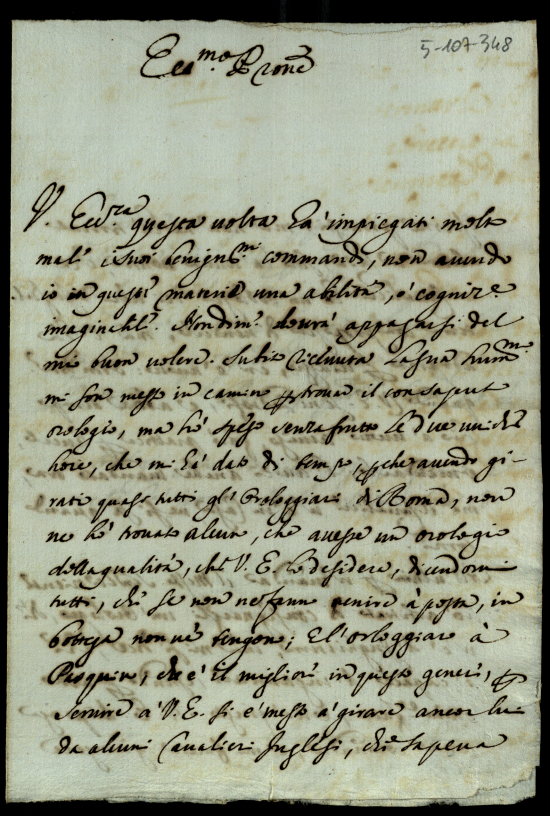 5-107-348
Ecc.mo Prone
V. Ecc.za questa uolta hà impiegati molto
mal' i suoi benign.mi commandi, non auendo
io in questi materie una abilità, ò cogniz.e
imaginabil. Nondim.o dourà appagarsi del
mio buon uolere. Subito riceuuta la sua hum.ma
mi son messo in camino p trouar il consaputo
orologio, ma hò speso senza frutto le due uinti
hore, che mi hà dato di tempo, p che auendo gi-
rati quasi tutti gl'Orologgiari di Roma, non
ne hò trouato alcun, che auesse un orologio
della qualità, che V. E. lo desidera, dicendomi
tutti, che se non ne fanno uenire à posta, in
bottega non nè tengono; E l'orloggiaro à
Pasquino, che è il miglior in questo genere, p
seruire à V. E. si è messo à girare ancor lui
da alcuni Caualieri Inglesi, che sapeua